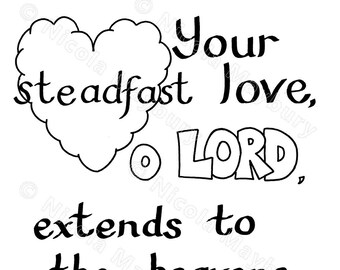 Your
steadfast love,
O LORD,
extends to
the heavens